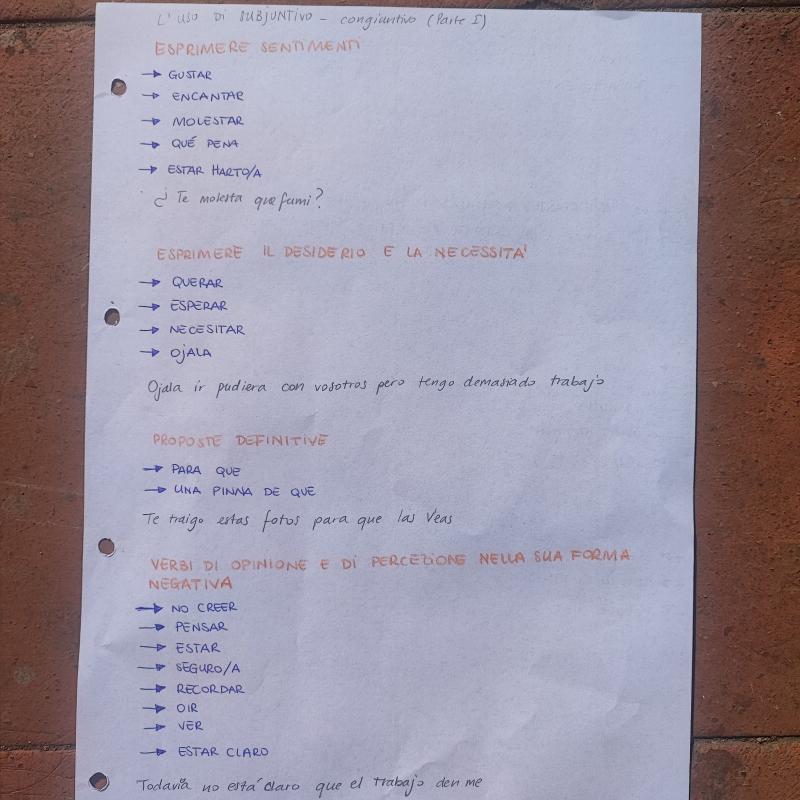 L'uso di SUBJUNTIVO - congiuntivo (Parte I)
ESPRIMERE SENTIMENTI
→ GUSTAR
→ ENCANTAR
→ MOLESTAR
→ QUÉ PENA
→ ESTAR HARTO/A
¿ Te molesta que fumi?
ESPRIMERE IL DESIDERIO E LA NECESSITA'
→ QUERAR
→ ESPERAR
→ NECESITAR
→ OJALA
Ojala ir pudiera con vosotros pero tengo demasiado trabajo
PROPOSTE DEFINITIVE
→ PARA QUE
→ UNA PINNA DE QUE
Te traigo estas fotos para que las Veas
VERBI DI OPINIONE E DI PERCEZIONE NELLA SUA FORMA
NEGATIVA
→ NO CREER
→ PENSAR
→ ESTAR
→ SEGURO/A
→ RECORDAR
→ OIR
→ VER
→ ESTAR CLARO
Todavía no está claro que el trabajo den me